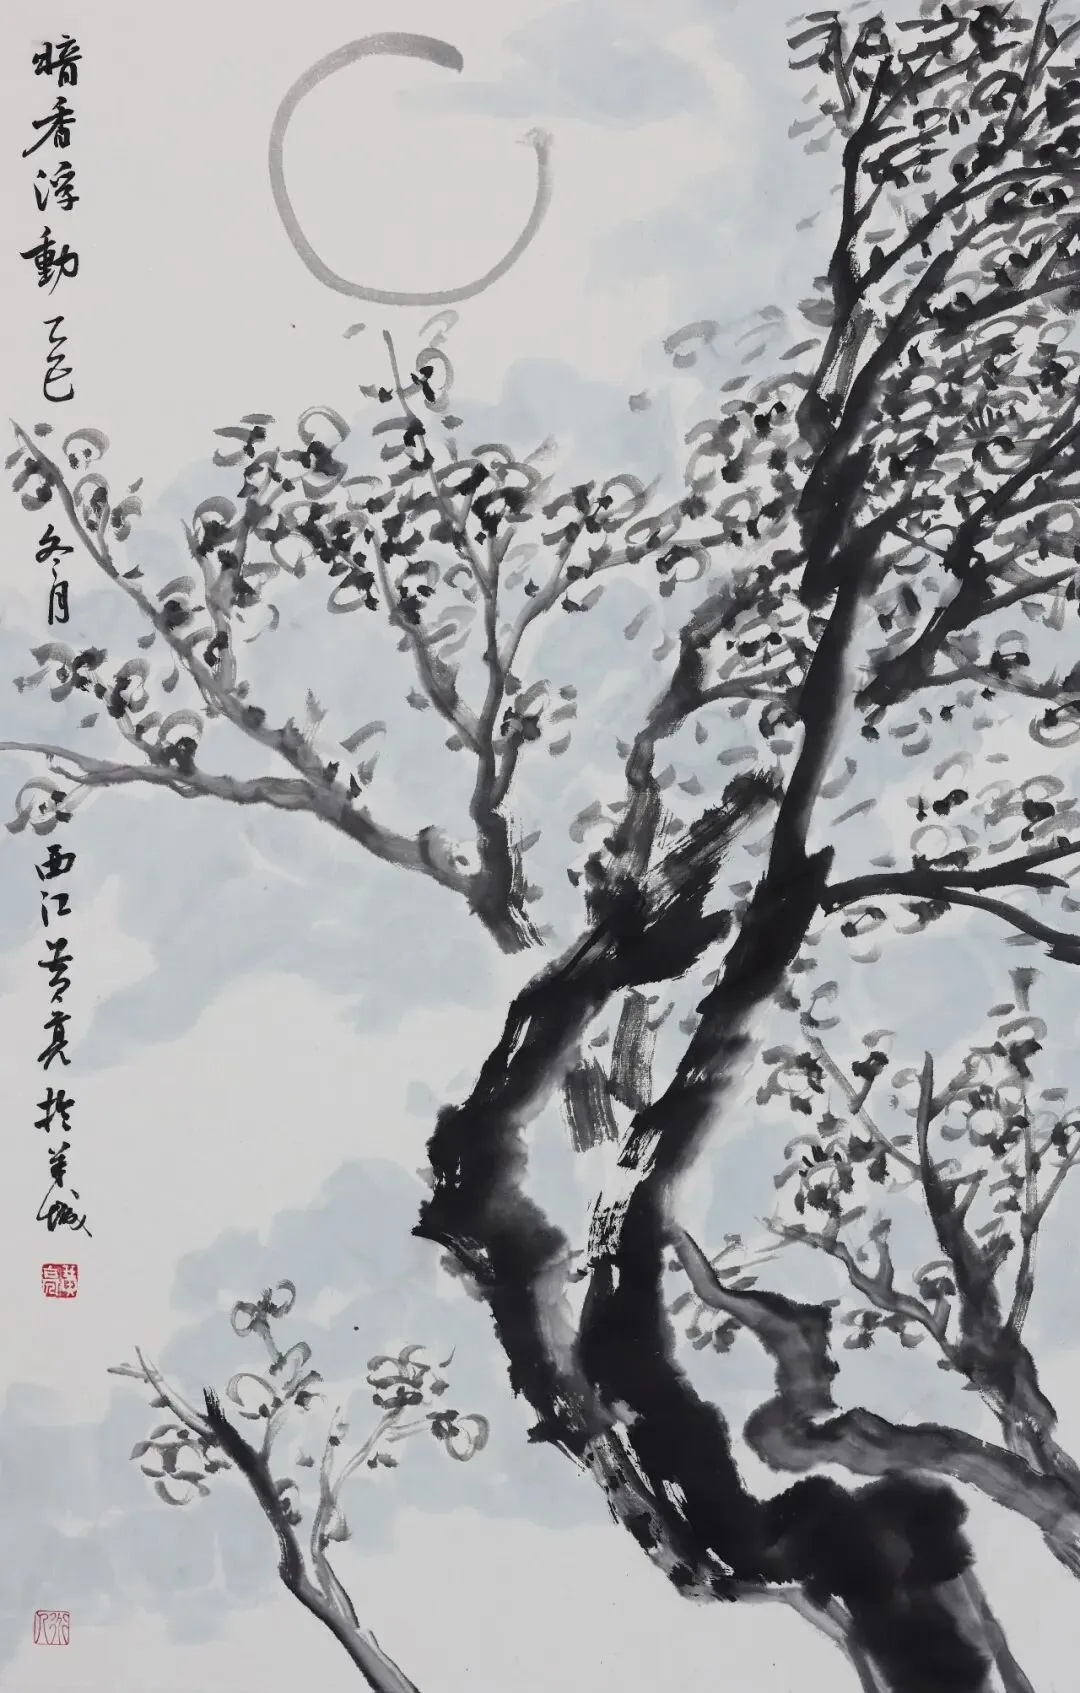 暗香浮動 乙巳 冬月 西江黄亮於羊城
黄亮